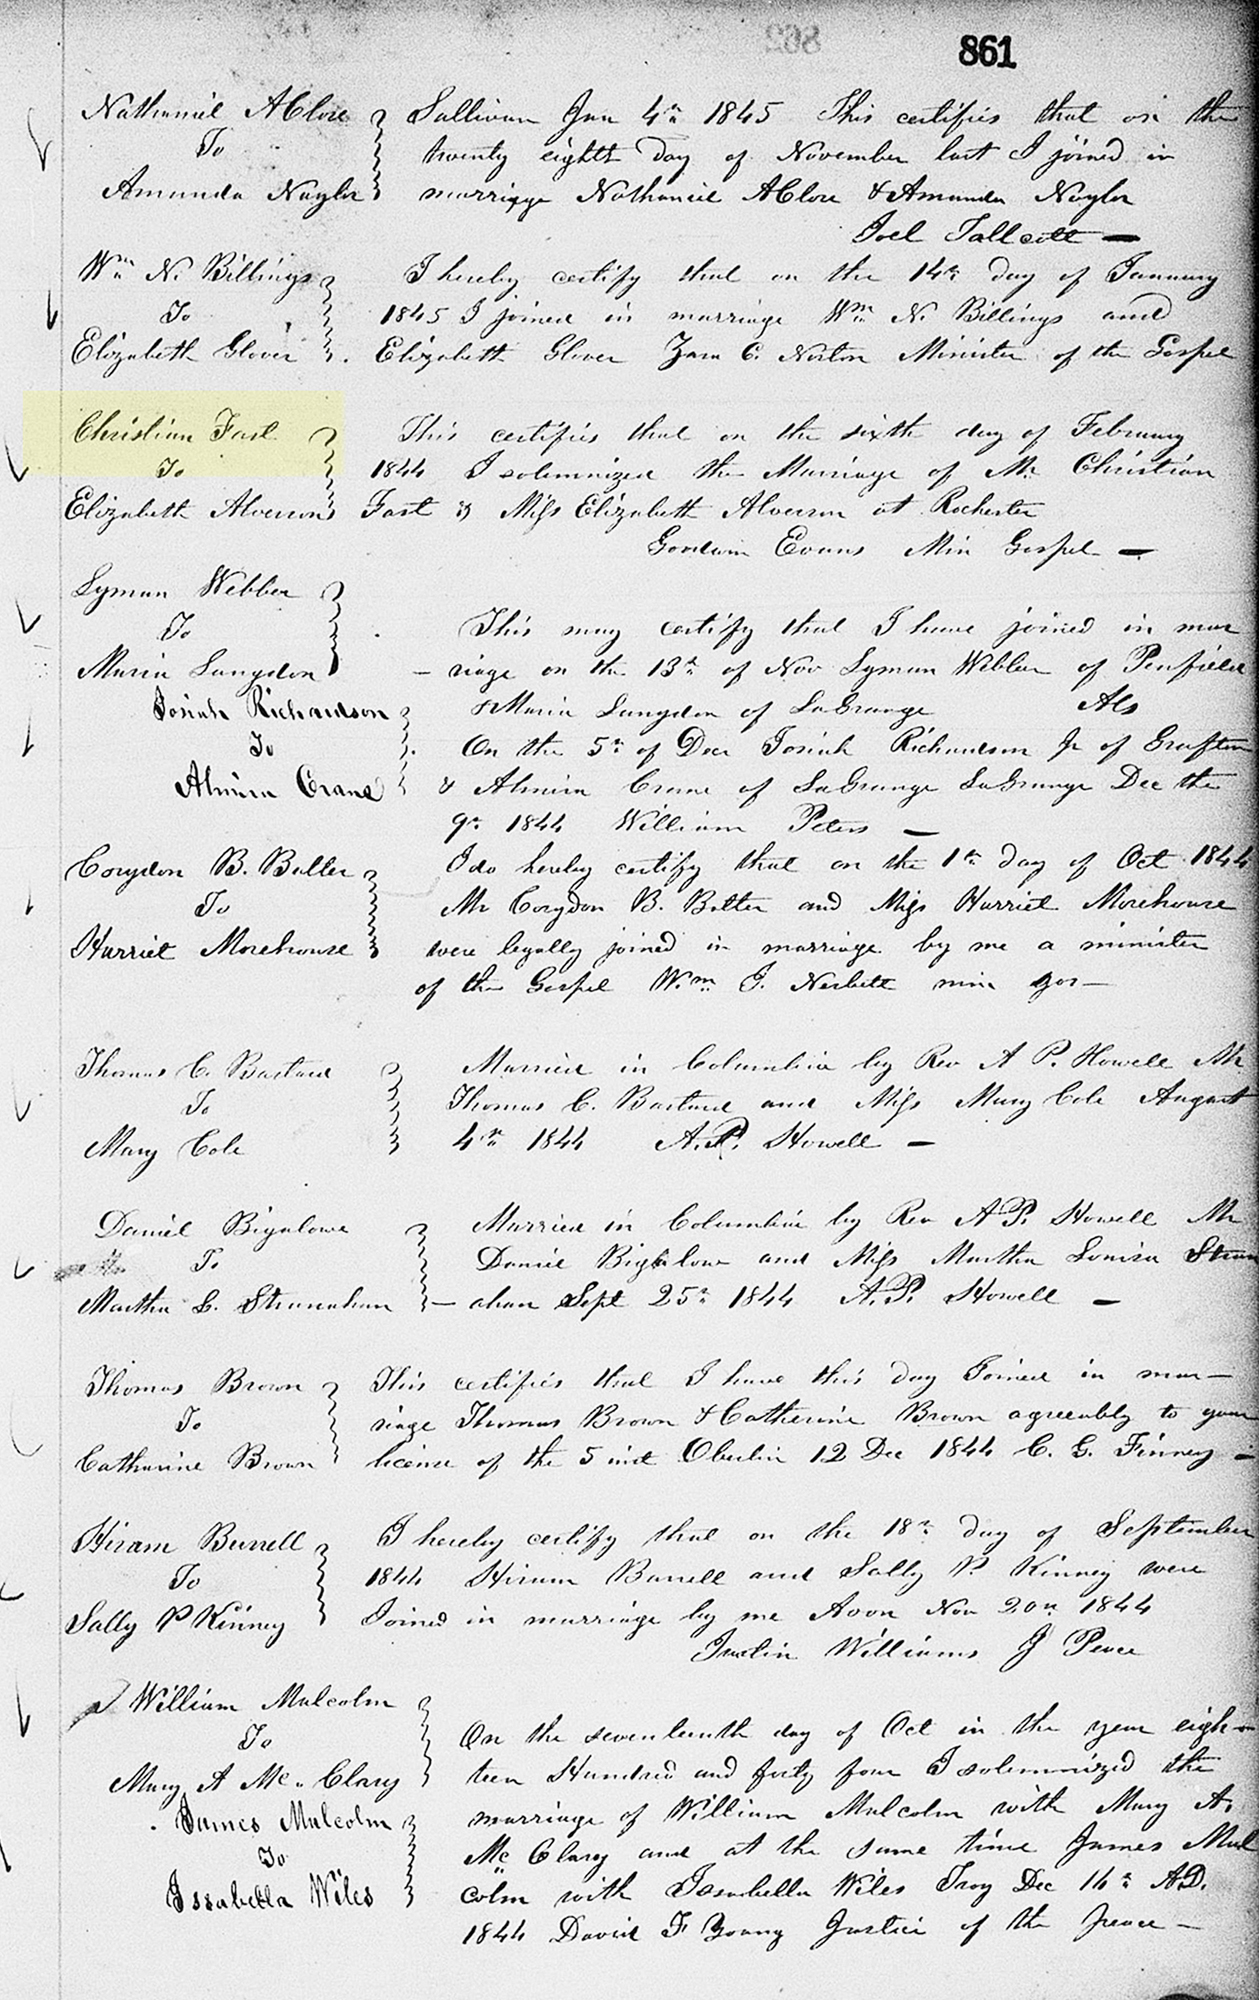 862
861
Nathaniel A Clore
To
Amanda Naylor
Sullivan Jan 4th 1845 This certifies that on the
twenty eighth day of November last I joined in
marriage Nathaniel A Clore & Amanda Naylor
Joel Tallcott —
Wm N. Billings
To
Elizabeth Glover
I hereby certify that on the 14th day of January
1845 I joined in marriage Wm N. Billings and
Elizabeth Glover C. Norton Minister of the Gospel
Christian Fast
To
Elizabeth Alverson
This certifies that on the sixth day of February
1844 I solemnized the Marriage of Mr Christian
Fast & Miss Elizabeth Alverson at Rochester
Evans Min Gospel —
Lyman Webber
To
Maria Langdon
This may certify that I have joined in mar
- riage on the 13th of Nov Lyman Webber of Penfield
& Maria Langdon of LaGrange Als
Josiah Richardson
To
Almira Crane
On the 5th of Decr Josiah Richardson Jr of Grafton
& Almira Crane of LaGrange LaGrange Dec the
9th 1844 William Peters —
Corydon B. Butler
To
Harriet Morehouse
I do hereby certify that on the 1st day of Oct 1844
Mr Corydon B. Butler and Miss Harriet Morehouse
were legally joined in marriage by me a minister
of the Gospel Wm J. Nesbitt min gos—
Thomas C. Bastard
To
Mary Cole
Married in Columbia by Rev A P. Howell Mr
Thomas C. Bastard and Miss Mary Cole August
4th 1844 A.P. Howell —
Daniel Bigalowe
To
Martha L. Stranahan
Married in Columbia by Rev A P. Howell Mr
Daniel Bigalow and Miss Martha Louisa Stran
— ahan Sept 25th 1844 A.P. Howell —
Thomas Brown
To
Catharine Brown
This certifies that I have this day Joined in mar—
riage Thomas Brown & Catherine Brown agreeably to your
license of the 5 inst Oberlin 12 Dec 1844 C. G. Finney —
Hiram Burrell
To
Sally P Kinney
I hereby certify that on the 18th day of September
1844 Hiram Burrell and Sally P. Kinney were
Joined in marriage by me Avon Nov 20th 1844
Justin Williams J Peace
William Malcolm
To
Mary A Mc Clary
On the seventeenth day of Oct in the year eigh-
teen Hundred and forty four I solemnized the
James Malcolm
To
Issabella Wiles
marriage of William Malcolm with Mary A.
Mc Clary and at the same time James Mal
colm with Issabella Wiles Troy Dec 16th A.D.
1844 David F Young Justice of the peace —